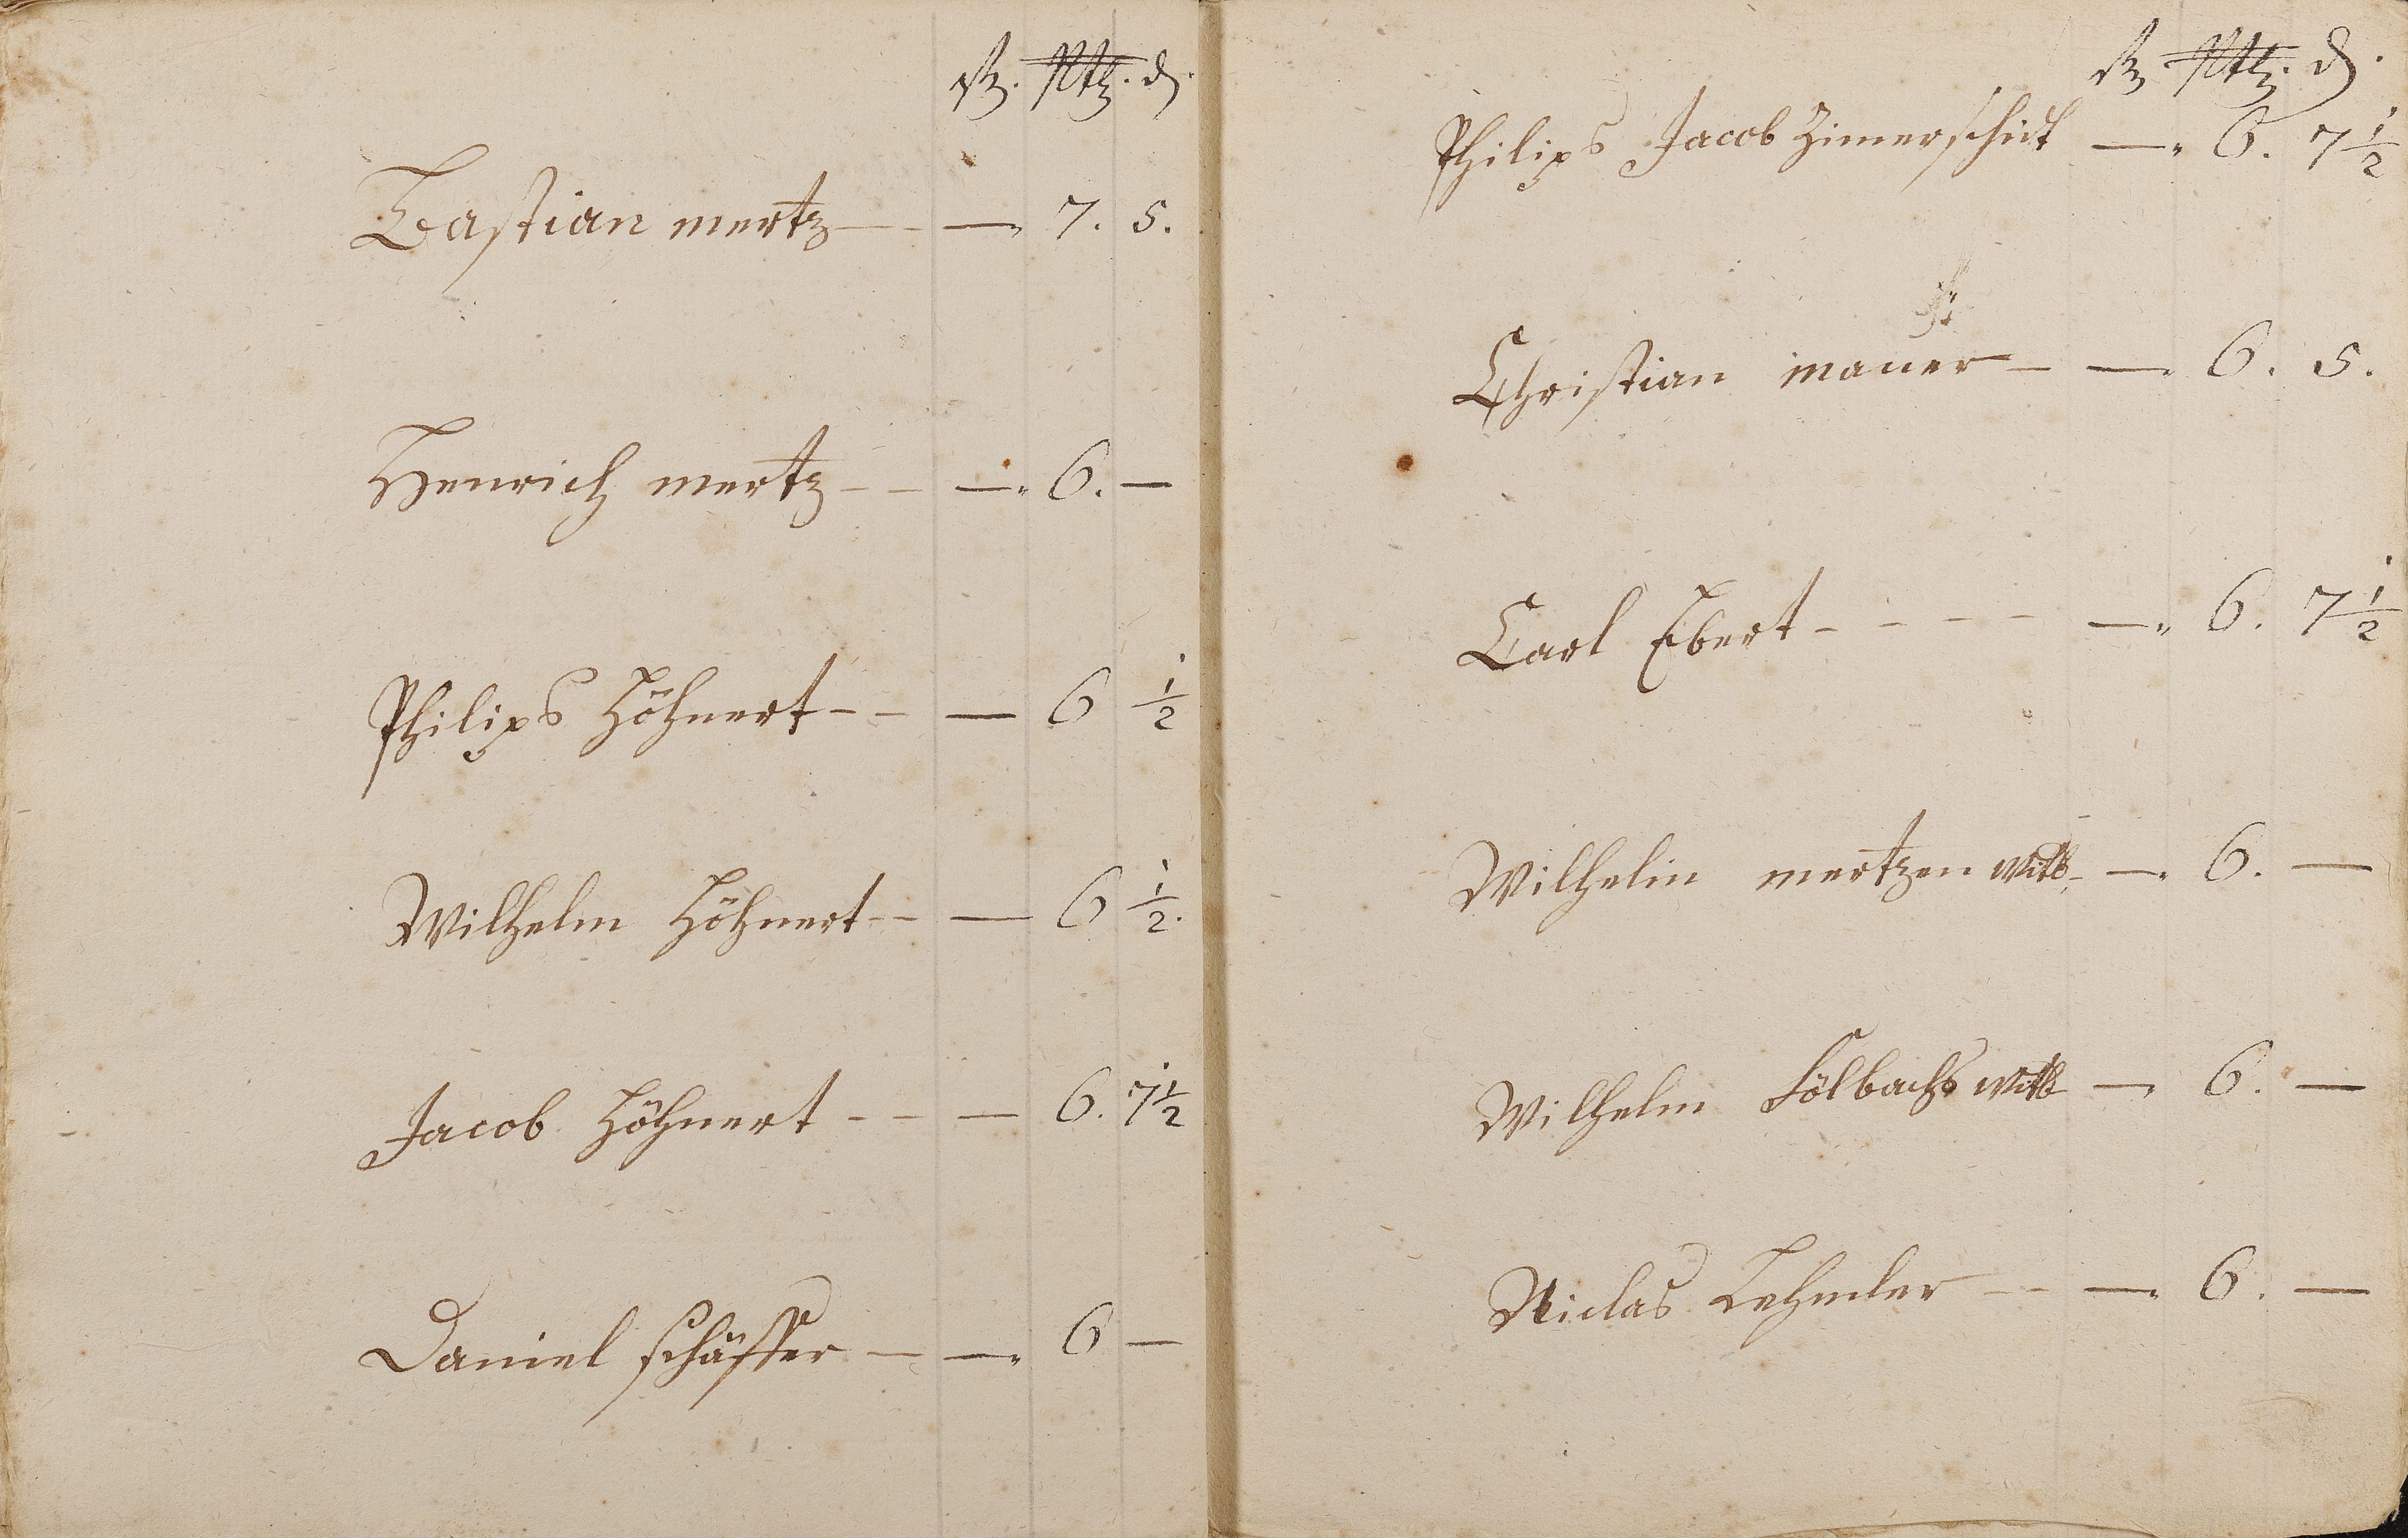 Bastian mertz — — — 7. 5.
Henrich mertz — — — 6. —
Philips Höhnert — — — 6 1/2
Wilhelm Höhnert — — — 6 1/2.
Jacob Höhnert — — — 6. 7 1/2
Daniel schäffer — — 6 —
Philips Jacob Zimerschid — 6. 7 1/2
Christian maüer — — 6. 5.
Carl Ebert - - - - — 6. 7 1/2
Wilhelm mertzen witb — 6. —
Wilhelm witb — 6. —
Niclas — — 6. —